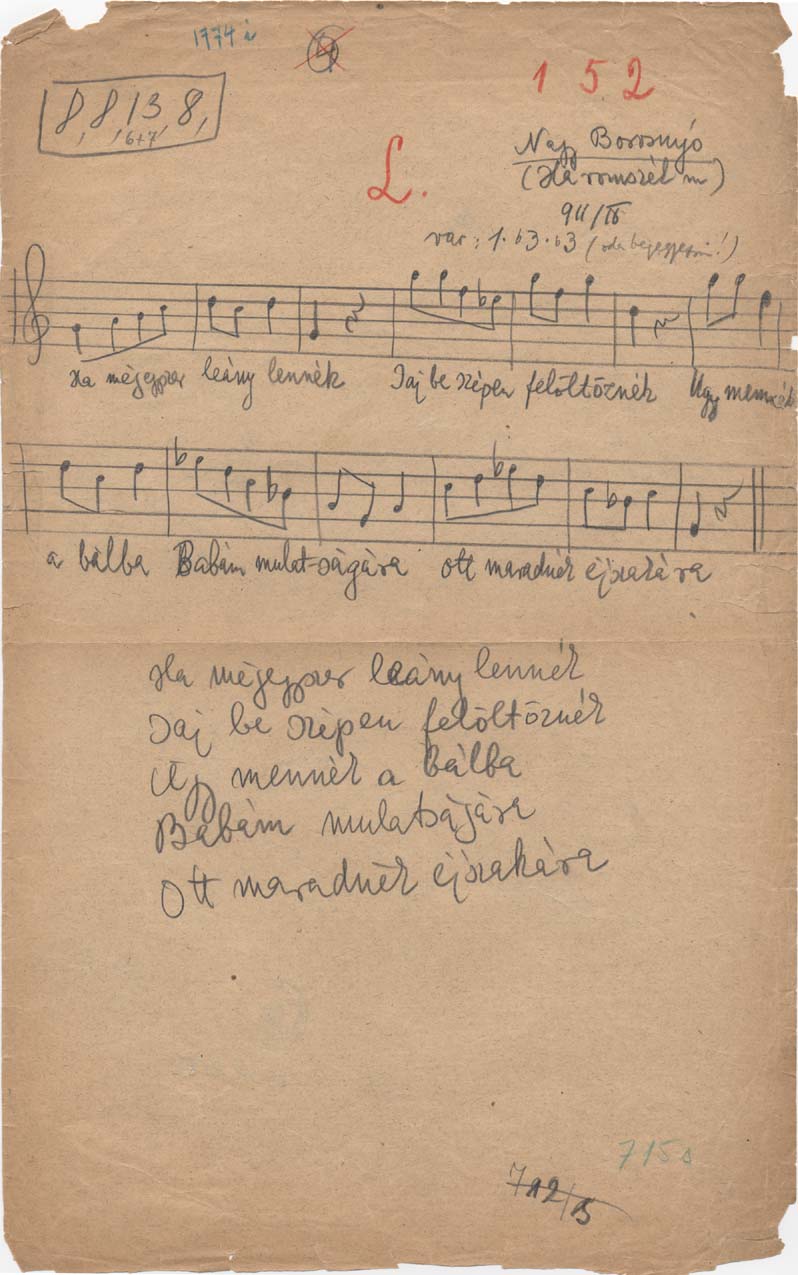 1774 i
1 5 2
8, 8, 13 8,
6+7
L.
Nagy Borosnyó
(Háromszék m)
911/IV
var: 1. b3. b3
Ha mégegyszer leány lennék Jaj be szépen felöltöznék Ugy mennék
a bálba Babám mulatságára ott maradnék éjszakára
Ha mégegyszer leány lennék
Jaj be szépen felöltöznék
Ugy mennék a bálba
Babám mulatságára
Ott maradnék éjszakára